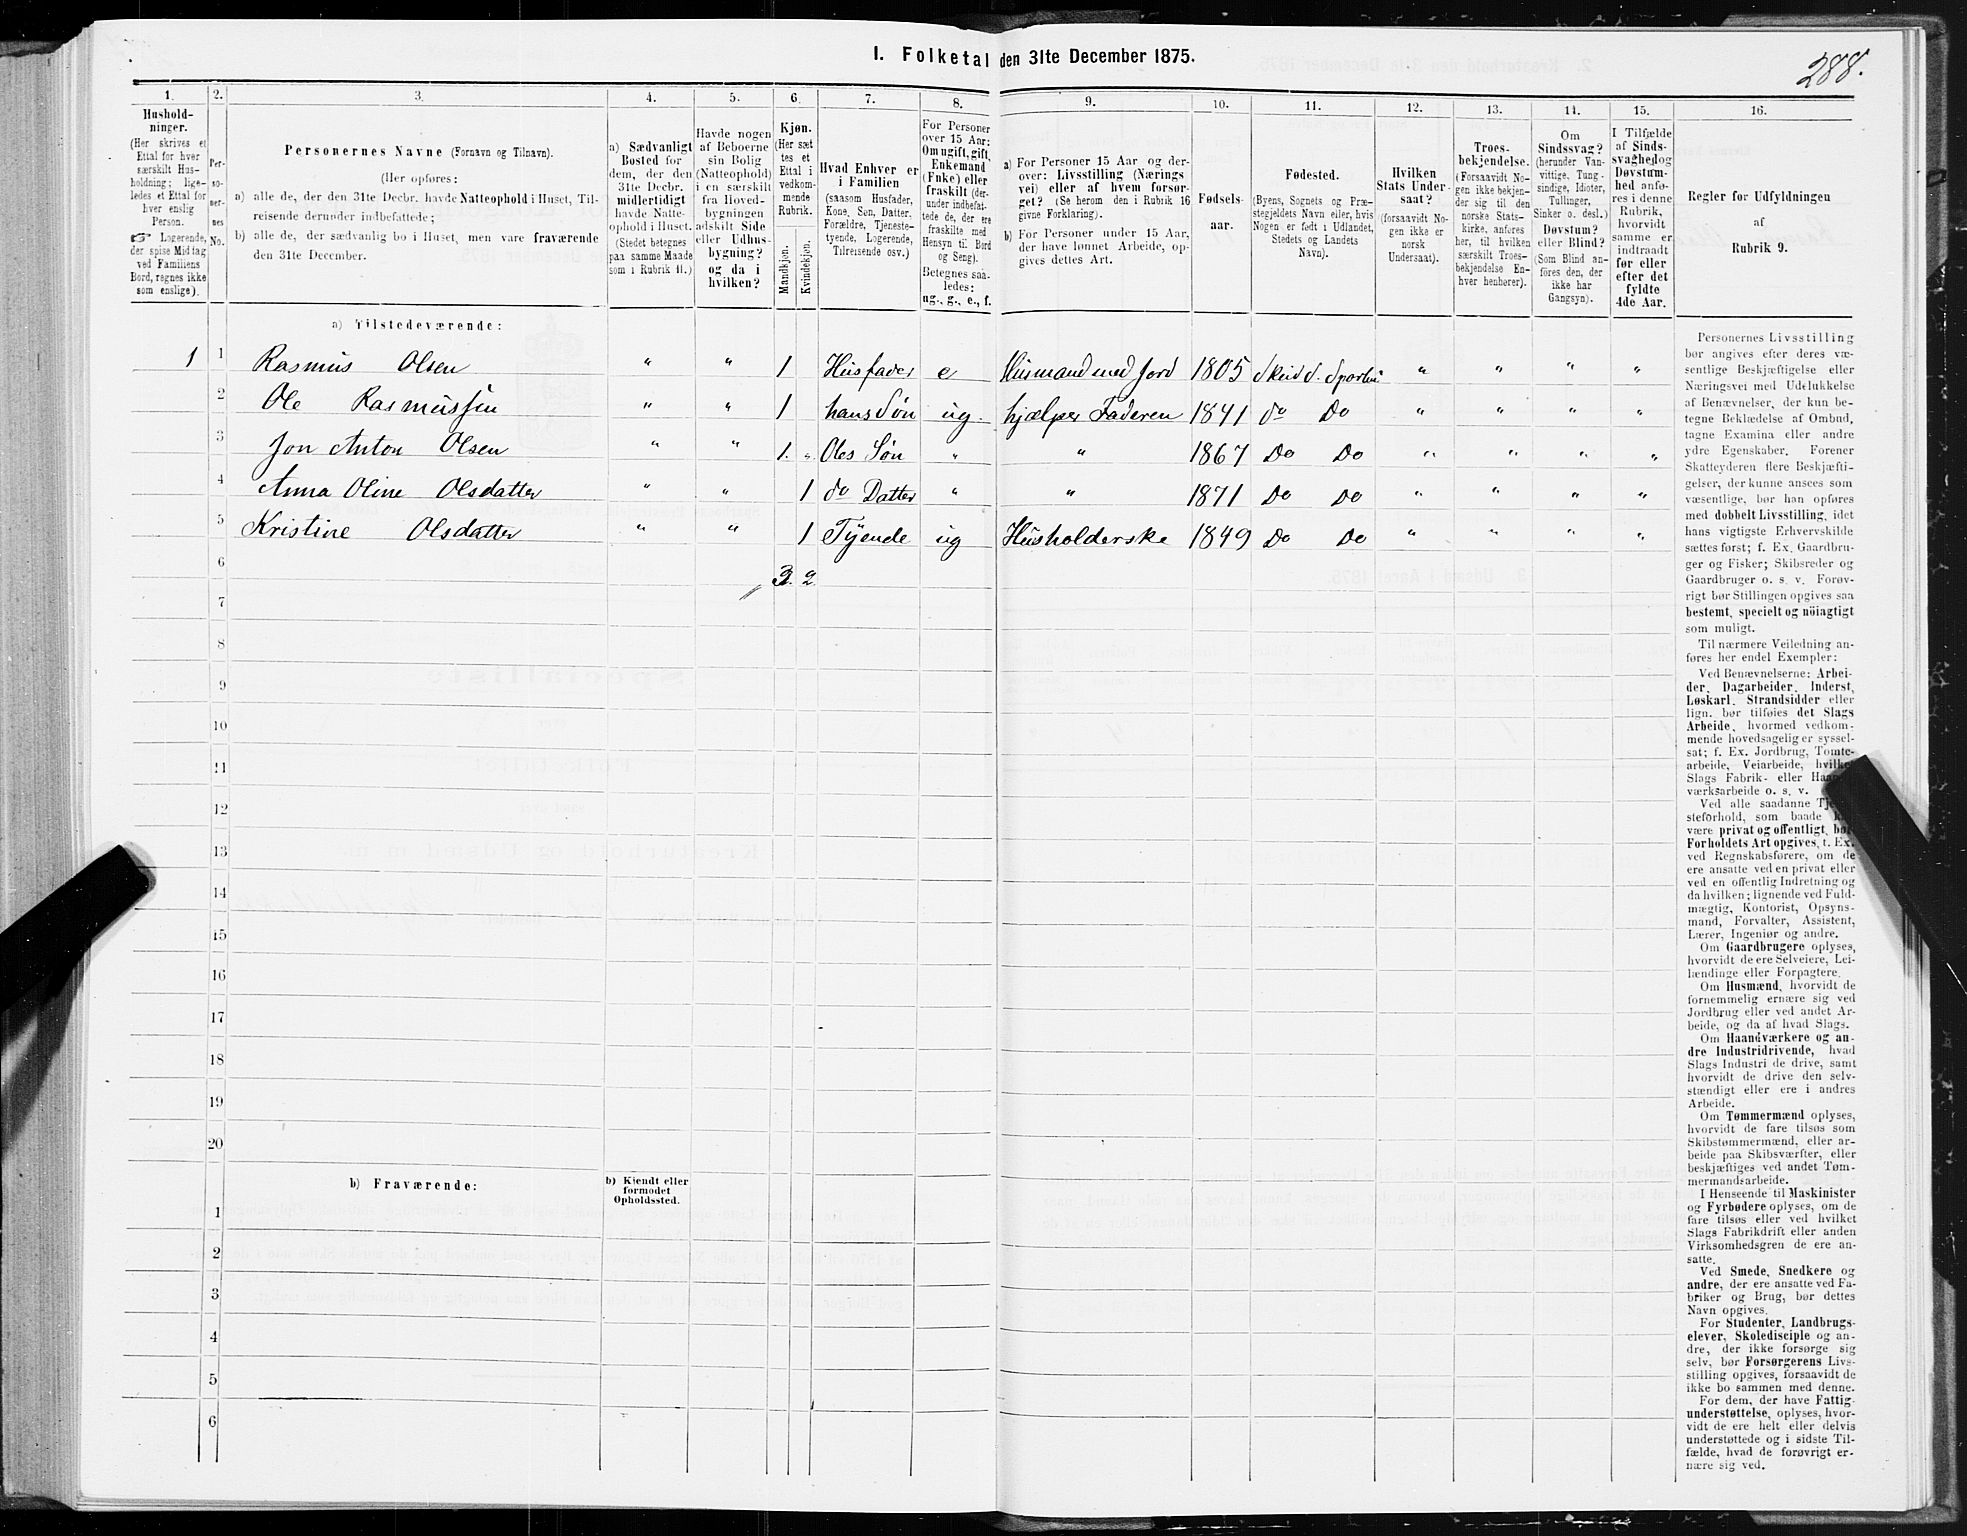 I. Folketal den 31te December 1875.
288.
1. 2. 3. 4. 5. 6. 7. 8. 9. 10. 11. 12. 13. 14. 15. 16.
Hushold-
ninger.
(Her skrives et
Ettal for hver
særskilt Hus-
holdning; lige-
ledes et Ettal for
hver enslig
Person.
☞ Logerende,
der spise Middag
ved Familiens
Bord, regnes ikke
som enslige).
Per-
so-
ner-
nes
No.
Personernes Navne (Fornavn og Tilnavn).
(Her opføres:
a) alle de, der den 31te Decbr. havde Natteophold i Huset, Til-
reisende derunder indbefattede;
b) alle de, der sædvanlig bo i Huset, men vare fraværende
den 31te December.
a) Sædvanligt
Bosted for
dem, der den
31te Decbr.
midlertidigt
havde Natte-
ophold i Huset.
(Stedet betegnes
paa samme Maade
som i Rubrik 11.)
Havde nogen
af Beboerne
sin Bolig
(Natteophold)
i en særskilt
fra Hoved-
bygningen
adskilt Side
eller Udhus-
bygning?
og da i
hvilken?
Kjøn.
(Her sæt-
tes et
Ettal i
vedkom-
mende
Rubrik.
Mandkjøn.
Kvindekjøn.
Hvad Enhver er
i Familien
(saasom Husfader,
Kone, Søn, Datter,
Forældre, Tjeneste-
tyende, Logerende,
Tilreisende osv.)
For Personer
over 15 Aar:
Om ugift, gift,
Enkemand
(Enke) eller
fraskilt (der-
under indbefat-
tede de, der ere
fraskilte med
Hensyn til Bord
og Seng).
Betegnes saa-
ledes:
ug., g., e., f.
a) For Personer 15 Aar og der-
over: Livsstilling (Nærings-
vei) eller af hvem forsør-
get? (Se herom den i Rubrik 16
givne Forklaring).
b) For Personer under 15 Aar,
der have lønnet Arbeide, op-
gives dettes Art.
Fødsels-
aar.
Fødested.
(Byens, Sognets og Præ-
stegjeldets Navn eller, hvis
Nogen er født i Udlandet,
Stedets og Landets
Navn).
Hvilken
Stats Under-
saat?
(forsaavidt No-
gen ikke er
norsk
Undersaat).
Troes-
bekjendelse.
(Forsaavidt No-
gen ikke bekjen-
der sig til den
norske Stats-
kirke, anføres
her, til hvilken
særskilt Troes-
bekjendelse En-
hver henhører).
Om
Sindssvag?
(herunder Van-
vittige, Tung-
sindige, Idioter,
Tullinger,
Sinker o. desl.)
Døvstum?
eller Blind?
(Som Blind an-
føres den, der
ikke har
Gangsyn).
I Tilfælde
af Sinds-
svaghed og
Døvstum-
hed anfø-
res i denne
Rubrik,
hvorvidt
samme er
indtraadt
før eller
efter det
fyldte
4de Aar.
Regler for Udfyldningen
af
Rubrik 9.
a) Tilstedeværende:
1 1 Rasmus Olsen " " 1 Husfader e Husmand med Jord 1805 " " " "
2 Ole Rasmussen " " 1 hans Søn ug. hjælper Faderen 1841 do Do " " " "
3 Jon Anton Olsen " " 1. " Oles Søn " " 1867 Do Do " " " "
4 Anna Oline Olsdatter " " 1 do Datter " " 1871 Do Do " " " "
5 Kristine Olsdatter " " 1 Tyende ug Husholderske 1849 Do Do " " " "
6 3. 2.
7
8
9
10
11
12
13
14
15
16
17
18
19
20
b) Fraværende:
b) Kjendt eller
formodet
Opholdssted.
1
2
3
4
5
6
Personernes Livsstilling
bør angives efter deres væ-
sentlige Beskjæftigelse eller
Næringsvei med Udelukkelse
af Benævnelser, der kun be-
tegne Beklædelse af Ombud,
tagne Examina eller andre
ydre Egenskaber. Forener
Skatteyderen flere Beskjæfti-
gelser, der kunne ansees som
væsentlige, bør han opføres
med dobbelt Livsstilling, idet
hans vigtigste Erhvervskilde
sættes først; f. Ex. Gaardbru-
ger og Fisker; Skibsreder og
Gaardbruger o. s. v. Forøv-
rigt bør Stillingen opgives saa
bestemt, specielt og nöiagtigt
som muligt.
Til nærmere Veiledning an-
føres her endel Exempler:
Ved Benævnelserne: Arbei-
der, Dagarbeider, Inderst,
Løskarl, Strandsidder eller
lign. bør tilføies det Slags
Arbeide, hvormed vedkom-
mende hovedsagelig er syssel-
sat; f. Ex. Jordbrug, Tomte-
arbeide, Veiarbeide, hvilket
Slags Fabrik- eller Haand-
værksarbeide o. s. v.
Ved alle saadanne Tje-
steforhold, som baade
være privat og offentligt, bør
Forholdets Art opgives, t. Ex.
ved Regnskabsførere, om de
ere ansatte ved en privat eller
ved en offentlig Indretning og
da hvilken; lignende ved Fuld-
mægtig, Kontorist, Opsyns-
mand, Forvalter, Assistent,
Lærer, Ingeniør og andre.
Om Gaardbrugere oplyses,
hvorvidt de ere Selveiere, Lei-
lændinge eller Forpagtere.
Om Husmænd, hvorvidt de
fornemmelig ernære sig ved
Jordbrug eller ved andet Ar-
beide, og da af hvad Slags.
Om Haandværkere og an-
dre Industridrivende, hvad
Slags Industri de drive, samt
hvorvidt de drive den selv-
stændigt eller ere i andres
Arbeide.
Om Tømmermænd oplyses,
hvorvidt de fare tilsøs som
Skibstømmermænd, eller ar-
beide paa Skibsværfter, eller
beskjæftiges ved andet Tøm-
mermandsarbeide.
I Henseende til Maskinister
og Fyrbødere oplyses, om de
fare tilsøs eller ved hvilket
Slags Fabrikdrift eller anden
Virksomhedsgren de ere an-
satte.
Ved Smede, Snedkere og
andre, der ere ansatte ved Fa-
briker og Brug, bør dettes
Navn opgives.
For Studenter, Landbrugs-
elever, Skoledisciple og an-
dre, der ikke forsørge sig
selv, bør Forsørgerens Livs-
stilling opgives, forsaavidt de
ikke bo sammen med denne.
For dem, der have Fattig-
understøttelse, oplyses, hvor-
vidt de ere helt eller delvis
understøttede og i sidste Til-
fælde, hvad de forøvrigt er-
nære sig ved.